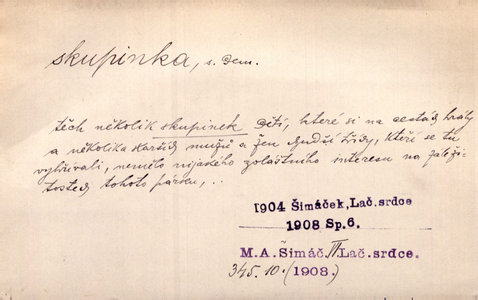 skupinka, s. dem.
těch několik skupinek dětí, které si na cestách hrály
a několika starších mužů a žen chudší třídy, kteří se tu
vyhřívali, nemělo nijakého zvláštního interesu na záleži-
tostech tohoto párku, ..
1904 Šimáček, Lač. srdce
1908 Sp. 6.
M. A. Šimáč. II Lač. srdce.
345. 10. (1908.)